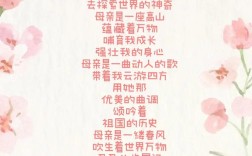 去探索世界的神奇
母亲是一座高山
蕴藏着万物
哺育我成长
强壮我的身心
母亲是一曲动人的歌
带着我云游四方
用她那
优美的曲调
颂吟着
祖国的历史
母亲是一缕春风
吹生着世界万物